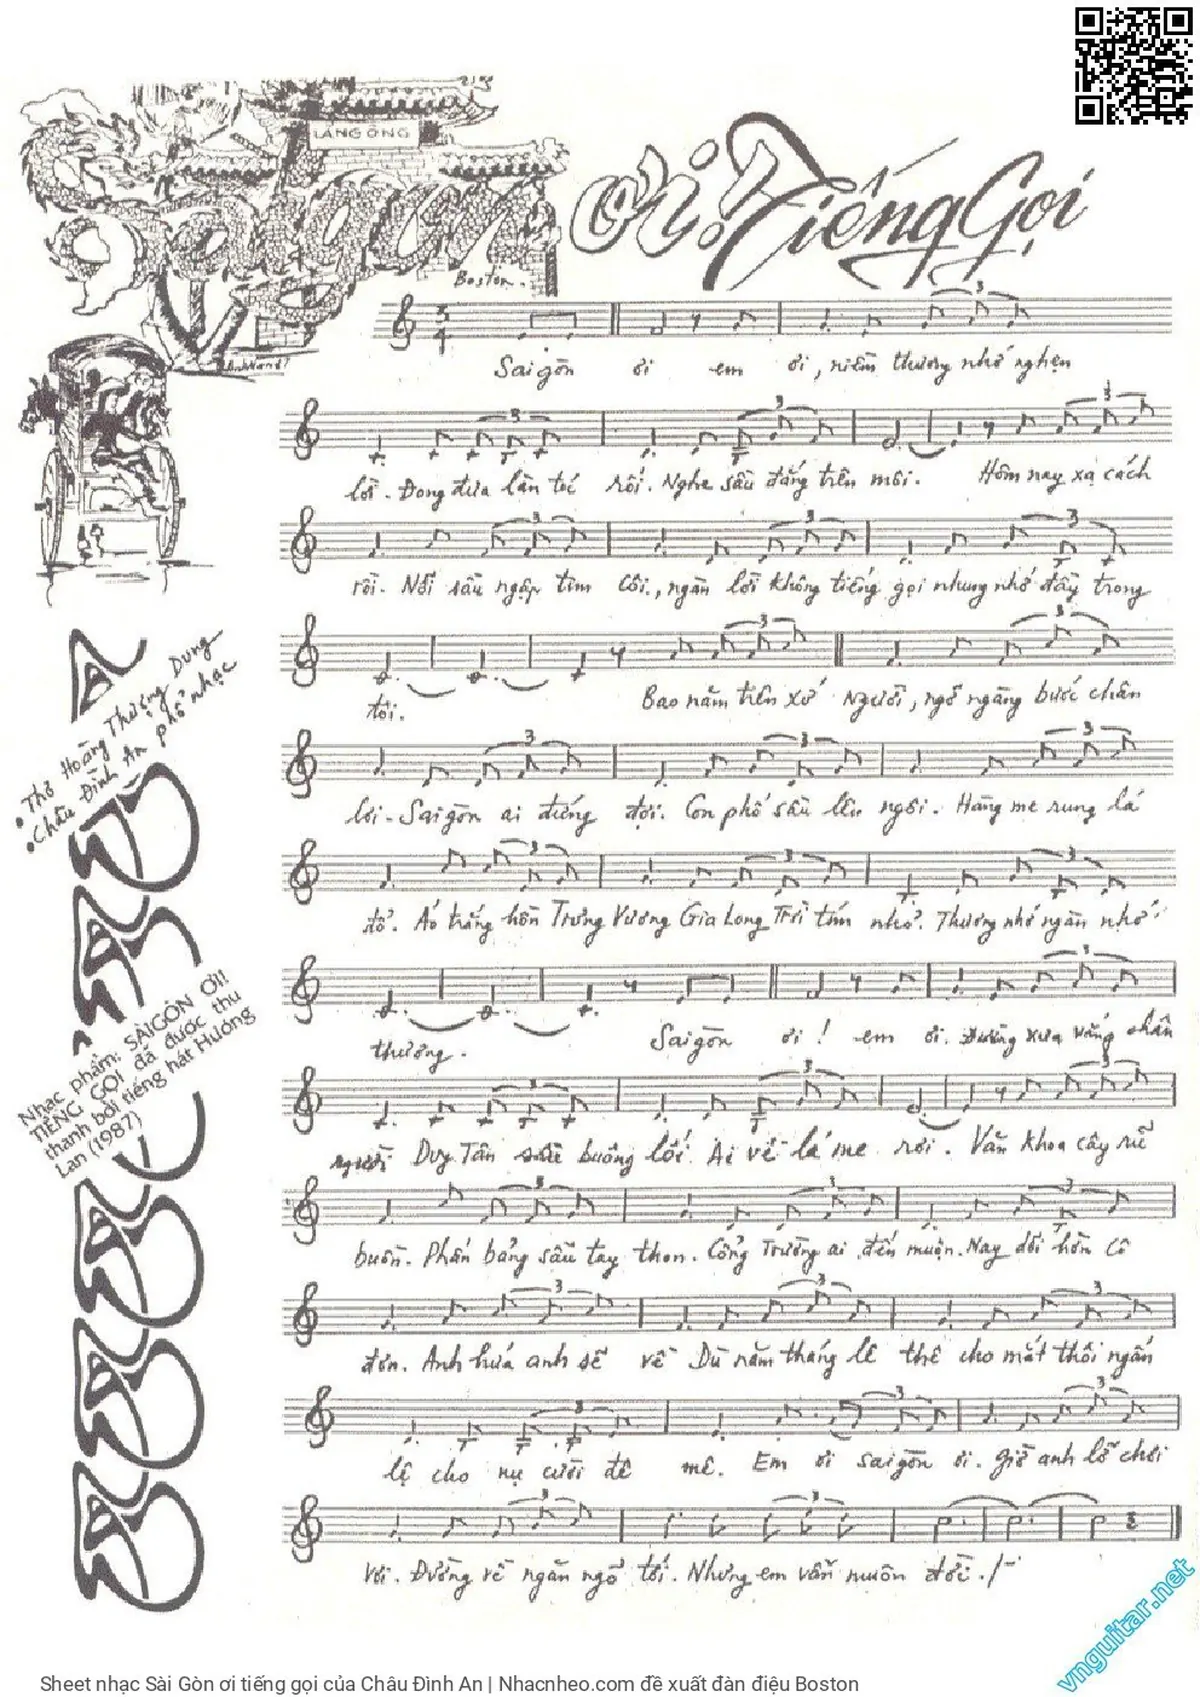 LĂNG ÔNG
Saigon ơi! Tiếng Gọi
Boston.
Saigòn ơi em ơi, niềm thương nhớ nghẹn
lời. Đong đưa làn tóc rối. Nghe sầu đắng trên môi. Hôm nay xa cách
rồi. Nỗi sầu ngập tim côi, ngàn lời không tiếng gọi nhưng nhớ đầy trong
tôi. Bao năm trên xứ Người, ngỡ ngàng bước chân
lơi. Saigòn ai đứng đợi. Con phố sầu lên ngôi. Hàng me rung lá
đổ. Áo trắng hồn Trưng Vương Gia Long Trời tím nhỏ. Thương nhớ ngàn nhớ
thương. Saigòn ơi! em ơi. Đường xưa vắng chân
người Duy Tân sầu buông lối. Ai về lá me rơi. Văn khoa cây rũ
buồn. Phấn bảng sầu tay thon. Cổng Trường ai đến muộn. Nay dỗi hờn cô
đơn. Anh hứa anh sẽ về Dù năm tháng lê thê cho mắt thôi ngấn
lệ cho nụ cười đê mê. Em ơi Saigòn ơi. Giờ anh lỡ chơi
vơi. Đường về ngăn ngõ tối. Nhưng em vẫn muôn đời./-
• Thơ Hoàng Thượng Dung
• Châu Đình An phổ nhạc
Nhạc phẩm: SÀIGÒN ƠI!!
TIẾNG GỌI đã được thu
thanh bởi tiếng hát Hương
Lan (1987)
vnguitar.net
Sheet nhạc Sài Gòn ơi tiếng gọi của Châu Đình An | Nhacnheo.com đề xuất đàn điệu Boston